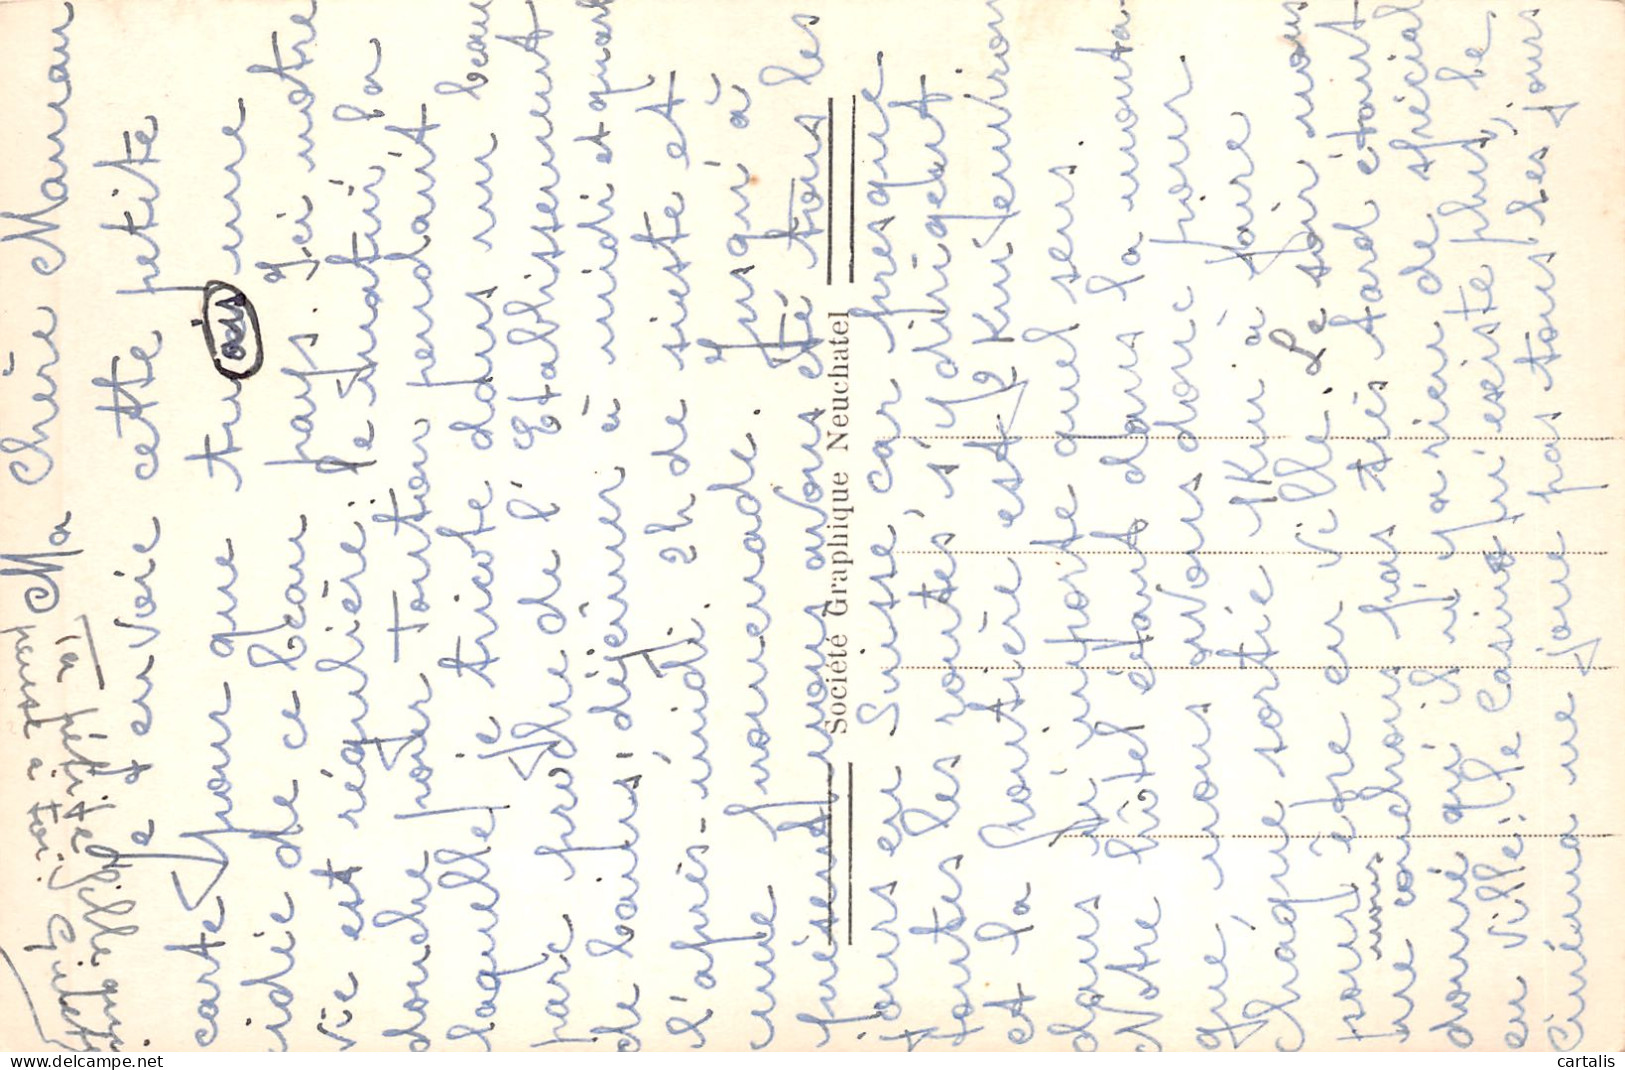 Ma Chère Maman
Je t'envoie cette petite
carte pour que tu aies une
idée de ce beau pays. Ici notre
vie est régulière: le matin, la
douche pour Tonton pendant
laquelle je tricote dans un beau
parc proche de l'Etablissement
de bains; déjeuner à midi et quart
l'après-midi. 2h de sieste et
une promenade. Jusqu'à
présent nous avons été tous les
jours en Suisse car presque
toutes les routes s'y dirigent.
et la frontière est 2 km environ
dans n'importe quel sens.
Notre hôtel étant dans la monta-
gne, nous avons donc pour
chaque sortie 1km à faire
pour être en ville. Le soir nous
ne couchons pas très tard étant
nous
donné qu'il n'y a rien de spécial
en ville: le Casino n'existe plus, le
Cinéma ne joue pas tous les jours
Ta petite fille qui
pense à toi.
Ginette
Société Graphique Neuchatel
cartalis